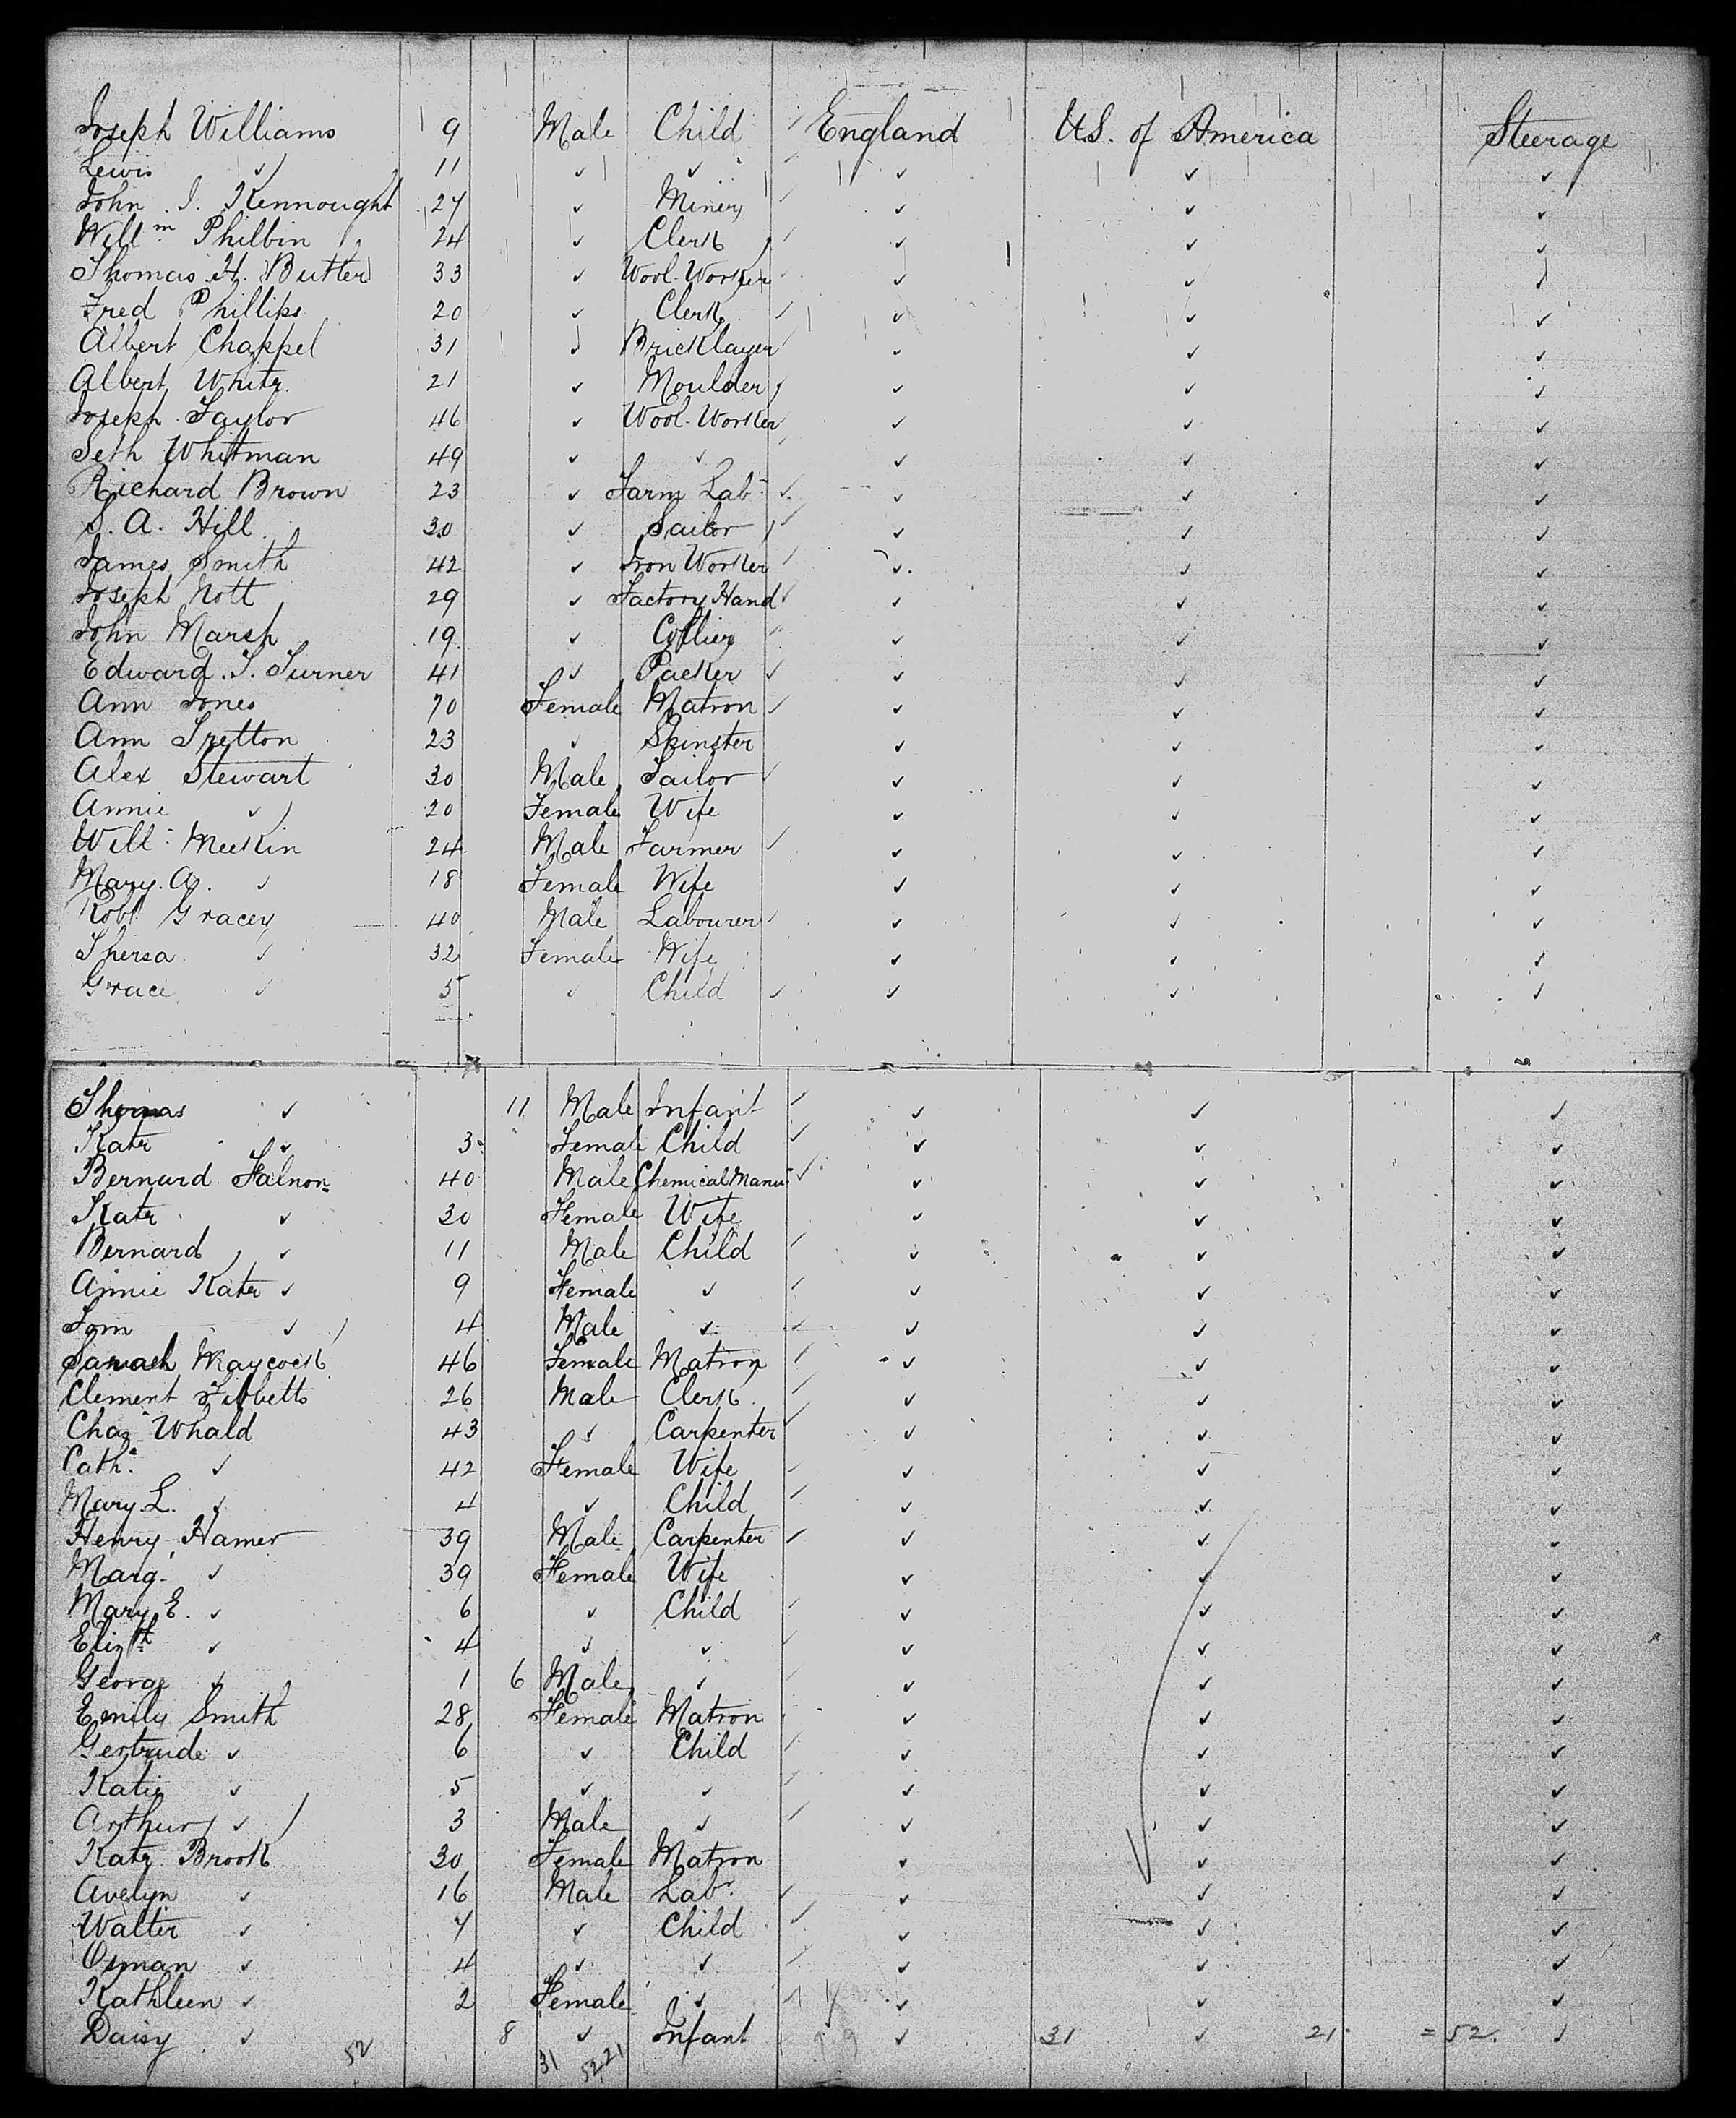 Joseph Williams 9 Male Child England U.S. of America Steerage
Lewis ✓ 11 ✓ ✓ ✓ ✓ ✓
John J. Kennought 27 ✓ Miner ✓ ✓ ✓
Willm Philbin 24 ✓ Clerk ✓ ✓ ✓
Thomas H. Butler 33 ✓ Wool-Worker ✓ ✓ ✓
Fred Phillips 20 ✓ Clerk ✓ ✓ ✓
Albert Chappel 31 ✓ Bricklayer ✓ ✓ ✓
Albert White 21 ✓ Moulder ✓ ✓ ✓
Joseph Taylor 46 ✓ Wool-Worker ✓ ✓ ✓
Seth Whitman 49 ✓ ✓ ✓ ✓ ✓
Richard Brown 23 ✓ Farm Labr ✓ ✓ ✓
S. A. Hill 30 ✓ Sailor ✓ ✓ ✓
James Smith 42 ✓ Iron Worker ✓ ✓ ✓
Joseph Nott 29 ✓ Factory Hand ✓ ✓ ✓
John Marsh 19 ✓ Collier ✓ ✓ ✓
Edward T. Turner 41 ✓ Packer ✓ ✓ ✓
Ann Jones 70 Female Matron ✓ ✓ ✓
Ann Tretton 23 ✓ Spinster ✓ ✓ ✓
Alex Stewart 30 Male Tailor ✓ ✓ ✓
Annie ✓ 20 Female Wife ✓ ✓ ✓
Will Meekin 24 Male Farmer ✓ ✓ ✓
Mary A. ✓ 18 Female Wife ✓ ✓ ✓
Robt Gracey 40 Male Labourer ✓ ✓ ✓
Thersa ✓ 32 Female Wife ✓ ✓ ✓
Grace ✓ 5 ✓ Child ✓ ✓ ✓
Thomas ✓ 11 Male Infant ✓ ✓ ✓
Kate ✓ 3 Female Child ✓ ✓ ✓
Bernard 40 Male Chemical Manu ✓ ✓ ✓
Kate ✓ 30 Female Wife ✓ ✓ ✓
Bernard ✓ 11 Male Child ✓ ✓ ✓
Annie Kate ✓ 9 Female ✓ ✓ ✓ ✓
Tom ✓ 4 Male ✓ ✓ ✓ ✓
Sarah Maycock 46 Female Matron ✓ ✓ ✓
Clement Tibbetts 26 Male Clerk ✓ ✓ ✓
Chas Whald 43 ✓ Carpenter ✓ ✓ ✓
Cathe ✓ 42 Female Wife ✓ ✓ ✓
Mary L. ✓ 4 ✓ Child ✓ ✓ ✓
Henry Hamer 39 Male Carpenter ✓ ✓ ✓
Marg. ✓ 39 Female Wife ✓ ✓ ✓
Mary E. ✓ 6 ✓ Child ✓ ✓ ✓
Elizth ✓ 4 ✓ ✓ ✓ ✓ ✓
George ✓ 1 6 Male ✓ ✓ ✓ ✓
Emily Smith 28 Female Matron ✓ ✓ ✓
Gertrude ✓ 6 ✓ Child ✓ ✓ ✓
Katie ✓ 5 ✓ ✓ ✓ ✓ ✓
Arthur ✓ 3 Male ✓ ✓ ✓ ✓
Kate Brook 30 Female Matron ✓ ✓ ✓
Avelyn ✓ 16 Male Labr. ✓ ✓ ✓
Walter ✓ 7 ✓ Child ✓ ✓ ✓
Osman ✓ 4 ✓ ✓ ✓ ✓ ✓
Kathleen ✓ 2 Female ✓ ✓ ✓ ✓
Daisy ✓ 8 ✓ Infant ✓ 31 ✓ 21 = 52. ✓
52 31 52 21